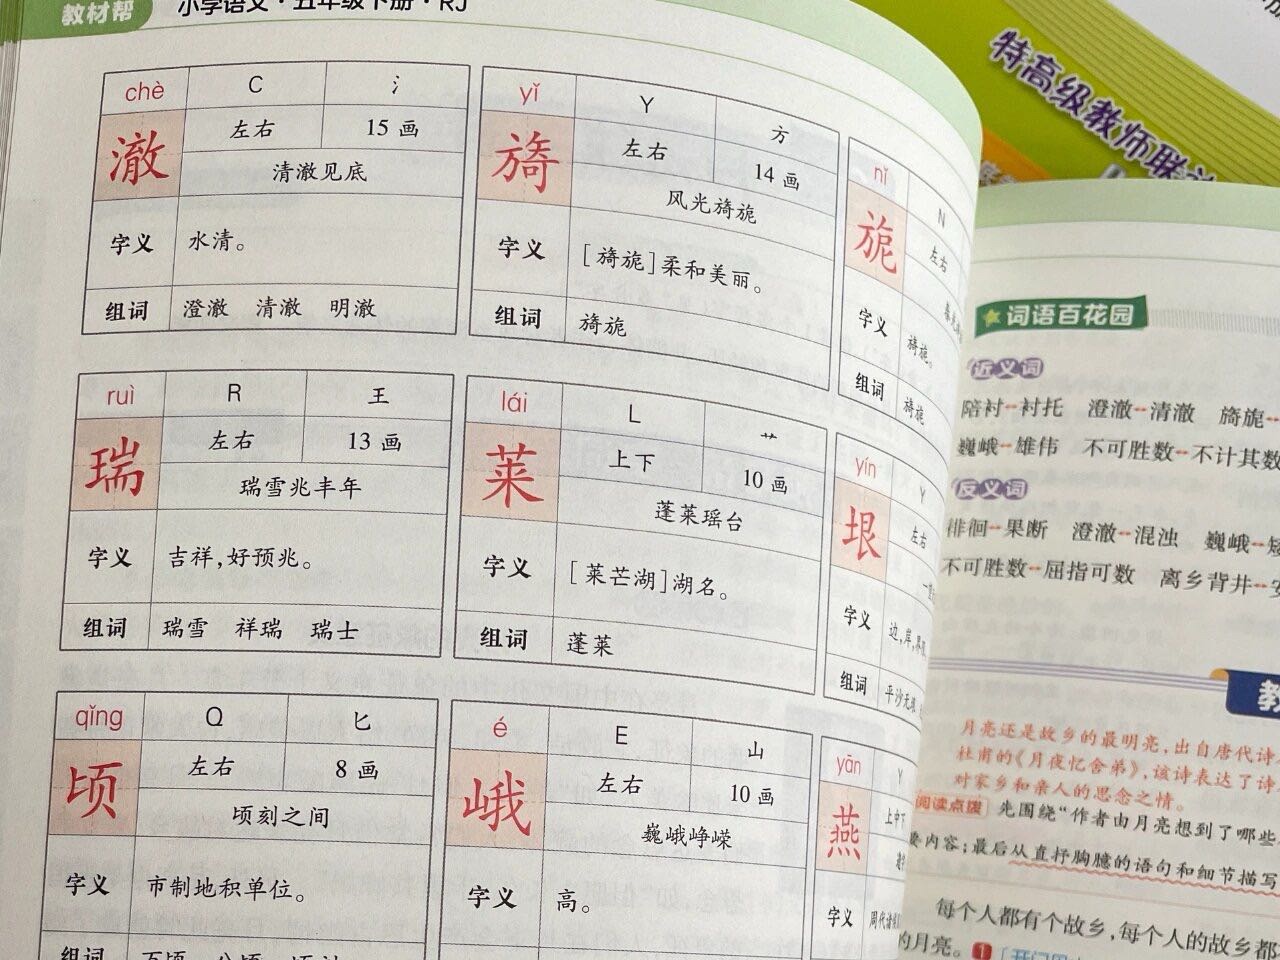 教材帮 小学语文·五年级下册·RJ
chè C 氵
澈 左右 15 画
清澈见底
字义 水清。
组词 澄澈 清澈 明澈
yǐ Y 方
旖 左右 14 画
风光旖旎
字义 [旖旎]柔和美丽。
组词 旖旎
nǐ N
旎 左右
字义 旖旎。
组词 旖旎
ruì R 王
瑞 左右 13 画
瑞雪兆丰年
字义 吉祥,好预兆。
组词 瑞雪 祥瑞 瑞士
lái L 艹
莱 上下 10 画
蓬莱瑶台
字义 [莱芒湖]湖名。
组词 蓬莱
yín Y
垠 左右
字义 边,岸,界限
组词 平沙无垠
qǐng Q 匕
顷 左右 8 画
顷刻之间
字义 市制地积单位。
组词
é E 山
峨 左右 10 画
巍峨峥嵘
字义 高。
yān Y
燕 上中下
字义 周代诸侯
特高级教师联
词语百花园
近义词
陪衬--衬托 澄澈--清澈 旖旎--
巍峨--雄伟 不可胜数--不计其数
反义词
徘徊--果断 澄澈--混浊 巍峨--矮
不可胜数--屈指可数 离乡背井--安
教
月亮还是故乡的最明亮,出自唐代诗
杜甫的《月夜忆舍弟》,该诗表达了诗
对家乡和亲人的思念之情。
阅读点拨 先围绕“作者由月亮想到了哪些
要内容;最后从直抒胸臆的语句和细节描写
每个人都有个故乡,每个人的故乡都
的月亮。1